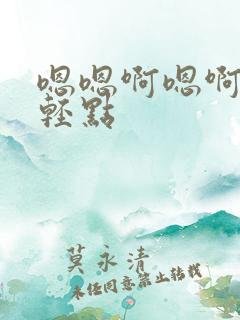 嗯嗯啊嗯啊
輕點
莫永清
未经同意禁止转载